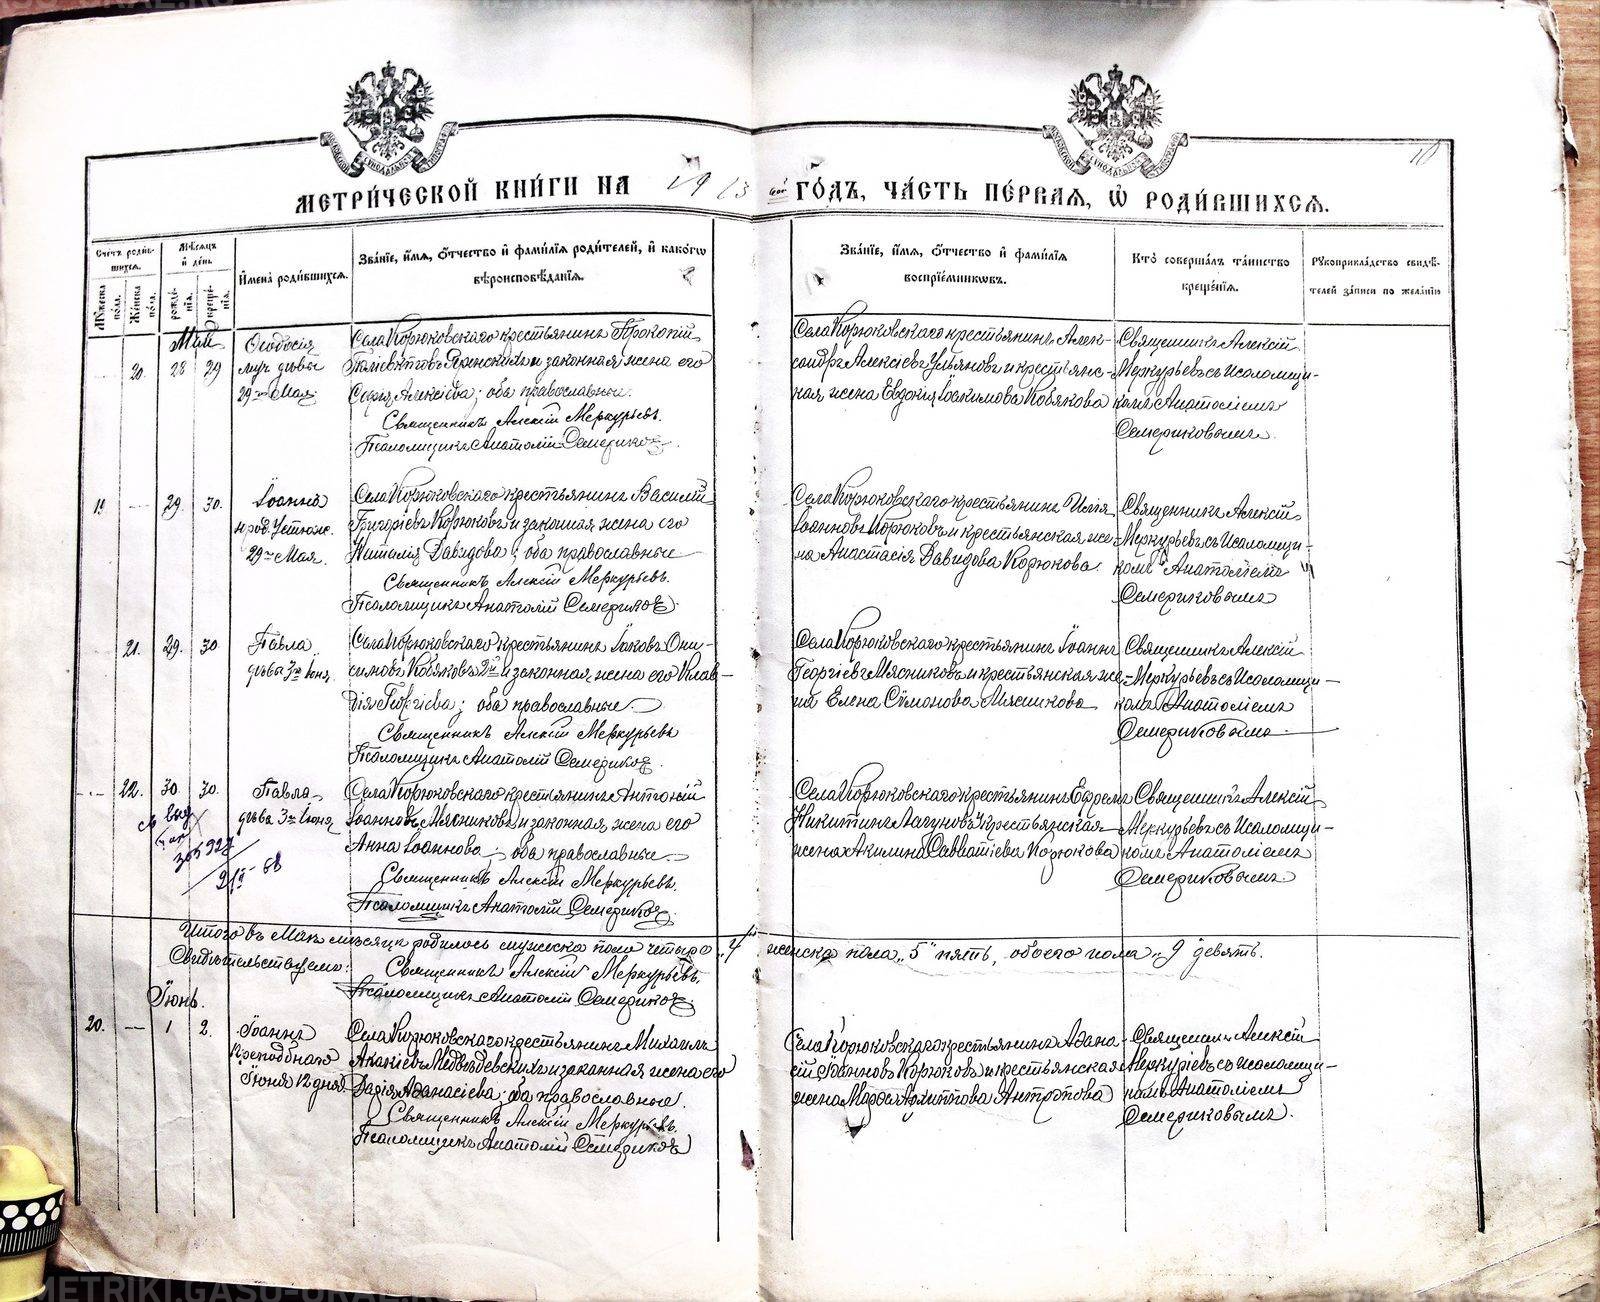 МЕТРИ́ЧЕСКОЙ КНИ́ГИ НА 1913 гой ГО́ДЪ, ЧА́СТЬ ПЕ́РВАЯ, Ѡ РОДИ́ВШИХСЯ.
Сче́тъ роди́вшихся.
Му́жеска по́ла.
Же́нска по́ла.
Мѣ́сяцъ и де́нь
рожде́нїя.
креще́нїя.
И҆мена̀ роди́вшихся.
Зва́нїе, и҆́мя, ѻ҆́тчество и҆ фами́лїя роди́телей, и҆ како́гѡ вѣроисповѣ́данїя.
Зва́нїе, и҆́мя, ѻ҆́тчество и҆ фами́лїя воспрїе́мниковъ.
Кто̀ соверша́лъ та́инство креще́нїя.
Рукоприкла́дство свидѣ́телей за́писи по жела́нїю
Май
20. 28 29
Ѳеодосія
муч. дѣвы
29го Мая
Села Корюковскаго крестьянинъ Прокопій
и законная жена его
Софія Алексіева; оба православные.
Священникъ Алексій Меркурьевъ.
Псаломщикъ Анатолій Семериковъ.
Села Корюковскаго крестьянинъ Алек-
сандръ Алексіевъ Ульяновъ и крестьянс-
кая жена Евдокія Іоакимова Кобякова
Священникъ Алексій
Меркурьевъ съ псаломщи-
комъ Анатоліемъ
Семериковымъ.
19 — 29. 30.
Іоаннъ
юрод. Устюж.
29го Мая.
Села Корюковскаго крестьянинъ Василій
Григоріевъ Корюковъ и законная жена его
Наталія Давидова; оба православные
Священникъ Алексій Меркурьевъ.
Псаломщикъ Анатолій Семериковъ.
Села Корюковскаго крестьянинъ Илія
Іоанновъ Корюковъ и крестьянская же-
на Анастасія Давидова Корюкова.
Священникъ Алексій
Меркурьевъ съ псаломщи-
комъ Анатоліемъ
Семериковымъ
21. 29. 30
Павла
дѣва 3го Іюня
Села Корюковскаго крестьянинъ Іаковъ Они-
симовъ Кобяковъ 2й и законная жена его Клав-
дія Георгіева; оба православные.
Священникъ Алексій Меркурьевъ
Псаломщикъ Анатолій Семериковъ.
Села Корюковскаго крестьянинъ Іоаннъ
Георгіевъ Мясниковъ и крестьянская же-
на Елена Сѵмонова Мясникова
Священникъ Алексій
Меркурьевъ съ псаломщи-
комъ Анатоліемъ
Семериковымъ
22. 30. 30.
Павла
дѣва 3го Іюня
Села Корюковскаго крестьянинъ Антоній
Іоанновъ Мясниковъ и законная жена его
Анна Іоаннова; оба православные.
Священникъ Алексій Меркурьевъ.
Псаломщикъ Анатолій Семериковъ.
Села Корюковскаго крестьянинъ Ефремъ
Никитинъ Лагуновъ и крестьянская
жена Акилина Савватіева Корюкова
Священникъ Алексій
Меркурьевъ съ псаломщи-
комъ Анатоліемъ
Семериковымъ.
Итого въ Маѣ мѣсяцѣ родилось мужеска пола четыре „4“ женска пола „5“ пять, обоего пола „9 девять.
Свидѣтельствуемъ:
Священникъ Алексій Меркурьевъ.
Псаломщикъ Анатолій Семериковъ.
Іюнь.
20. — 1 2.
Іоаннъ
Преподбная
Іюня 12 дня
Села Корюковскаго крестьянинъ Михаилъ
Акакіевъ Медвѣдевскихъ и законная жена его
Дарія Аѳанасіева; оба православные.
Священникъ Алексій Меркурьевъ.
Псаломщикъ Анатолій Семериковъ
Села Корюковскаго крестьянинъ Аѳана-
сій Іоанновъ Корюковъ и крестьянская
жена Марѳа Архиппова Антропова
Священникъ Алексій
Меркуріевъ съ псаломщи-
комъ Анатоліемъ
Семериковымъ.